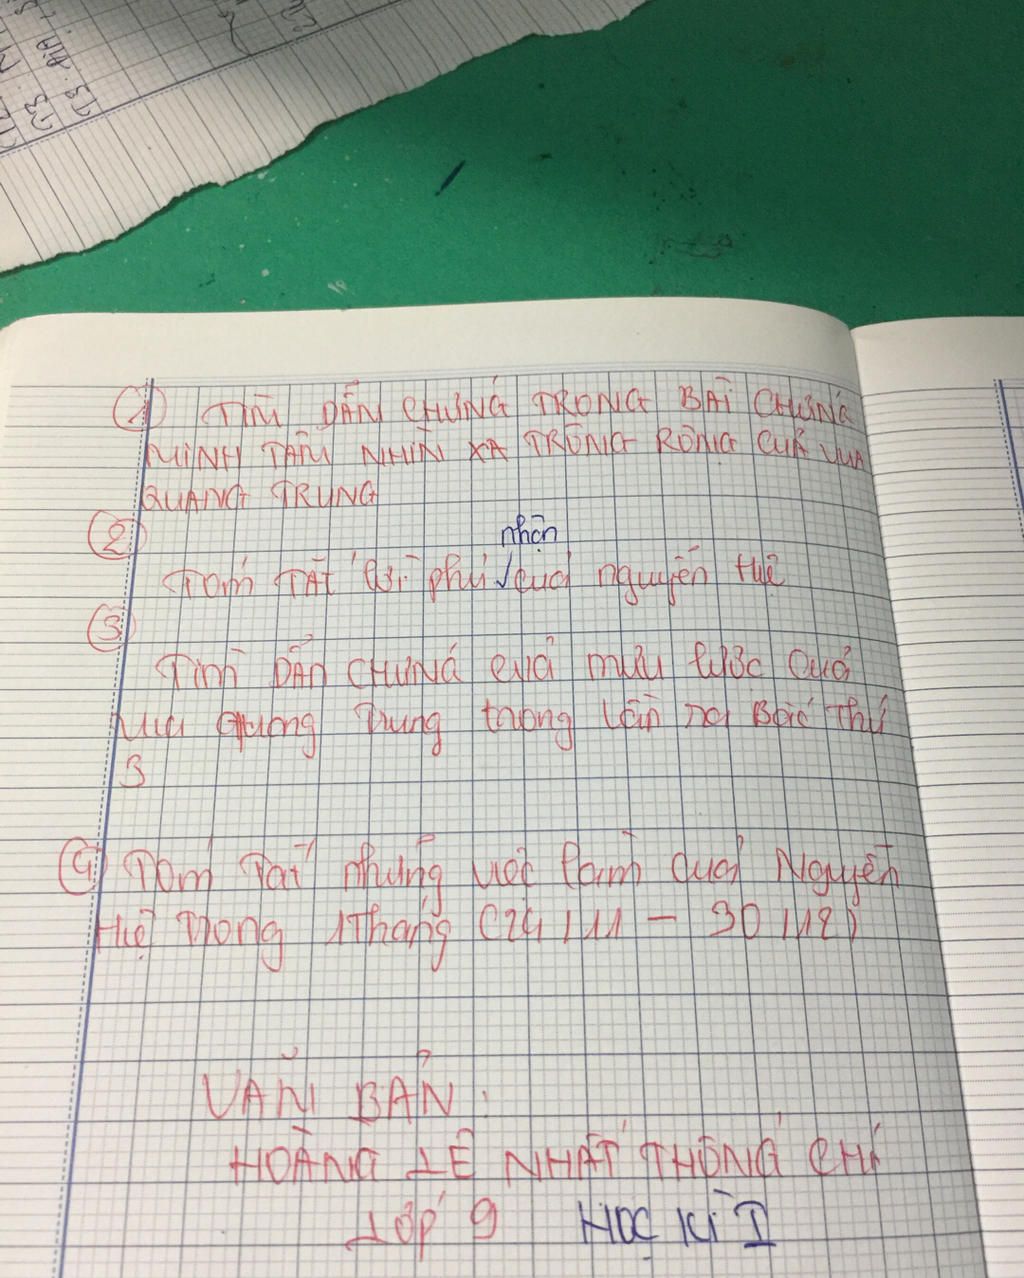 ① TÌM DẪN CHỨNG TRONG BÀI CHỨNG
MINH TẦM NHÌN XA TRÔNG RỘNG CỦA VUA
QUANG TRUNG
②
nhận
Tóm TẮT lời phủ √ của nguyễn Huệ
③
Tìm DẪN CHỨNG của mưu lược của
vua Quang Trung trong lần ra Bắc Thứ
3
④ Tóm Tắt những việc làm của Nguyễn
Huệ Trong 1 Tháng (24/11 - 30/12)
VĂN BẢN:
HOÀNG LÊ NHẤT THỐNG CHÍ
LỚP 9 HỌC KÌ I